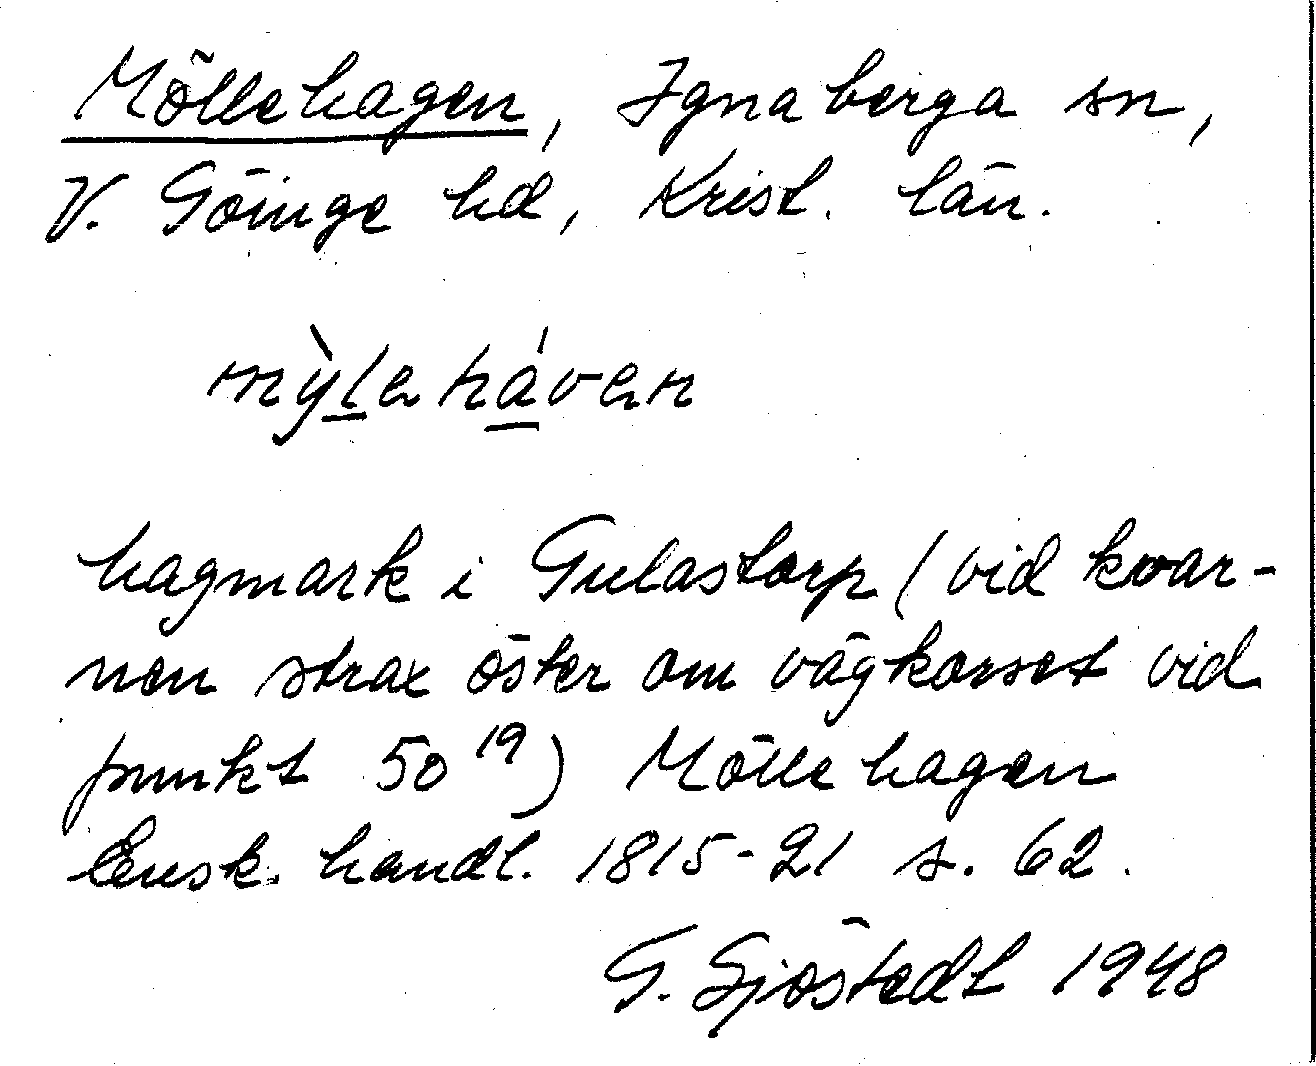 Möllehagen, Ignaberga sn,
V. Göinge hd, Krist. län.
mỳlehá̱ven
hagmark i Gulastorp (vid kvar-
nen strax öster om vägkorset vid
punkt 50¹⁹) Möllehagen
Ensk. handl. 1815-21 s. 62.
G. Sjöstedt 1948